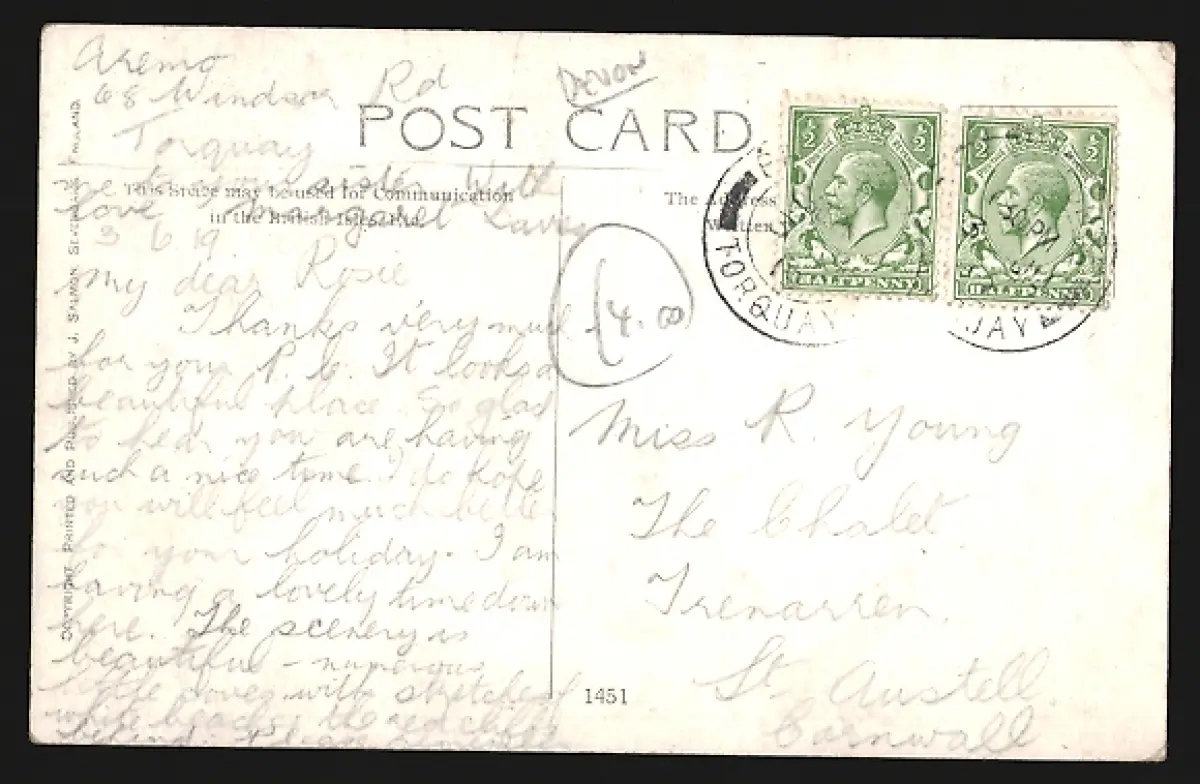 Aremo
68 Windsor Rd
Torquay
Devon
POST CARD
This space may be used for Communication
in the British Isles only.
The Address
Written
me to my side With
love Margaret Laver
3 6 19
My dear Rosie
Thanks very much
for your P.C. It looks a
beautiful place. So glad
to hear you are having
such a nice time. I do hope
you will feel much better
for your holiday. I am
having a lovely time down
here. The scenery is
beautiful - numerous
little coves with stretches of
white beaches the red cliffs
behind.
14.00
½ ½
HALFPENNY
½ ½
HALFPENNY
TORQUAY
QUAY
Miss R. Young
The Chalet
Trenarren.
St Austell.
Cornwall.
1451
COPYRIGHT. PRINTED AND PUBLISHED BY J. SALMON SEVENOAKS ENGLAND.